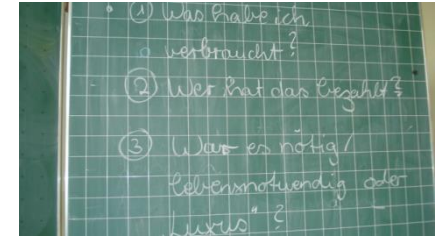 ① Was habe ich
verbraucht?
② Wer hat das bezahlt?
③ War es nötig/
lebensnotwendig oder
"Luxus"?